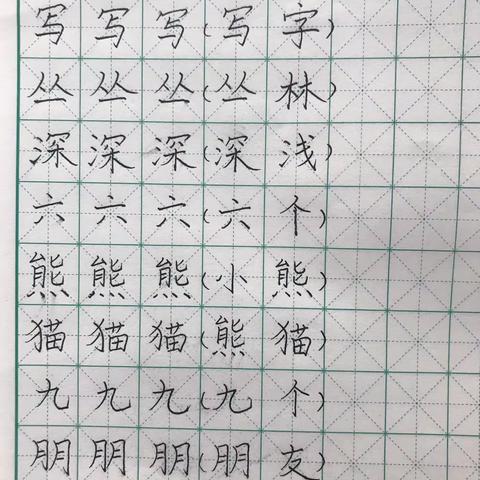 写写写(写字)
丛丛丛(丛林)
深深深(深浅)
六六六(六个)
熊熊熊(小熊)
猫猫猫(熊猫)
九九九(九个)
朋朋朋(朋友)